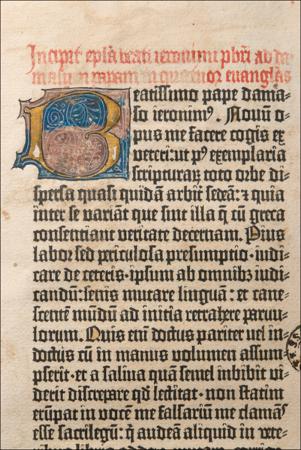 Incipit epl̄a beati ieronimi pb̄ri ad da-
masum papam in quatuor euang̅l̅as
Beatissimo pape dama-
so ieronimꝰ. Nouū o-
pus me facere cogis ex
veteri: ut pꝰ exemplaria
scripturaꝝ toto orbe di-
spersa quasi quidā arbit̄ sedeā: ⁊ quia
inter se variāt que sint illa q̄ cū greca
consentiant veritate decernam. Pius
labor sed periculosa presumptio· iudi-
care de ceteris· ipsum ab omnibꝫ iudi-
candū: senis mutare linguā: et cane-
scentē mūdū ad initia retrahere paruu-
lorum. Quis eni doctus pariter vel in-
doctus cū in manus volumen assum-
pserit· et a saliua quā semel inbibit vi-
derit discrepare qd̄ lectitat· non statim
erūpat in vocē me falsariū me clamās
esse sacrilegū: q̇ audeā aliquid in vete-
ribus libris addere mutare